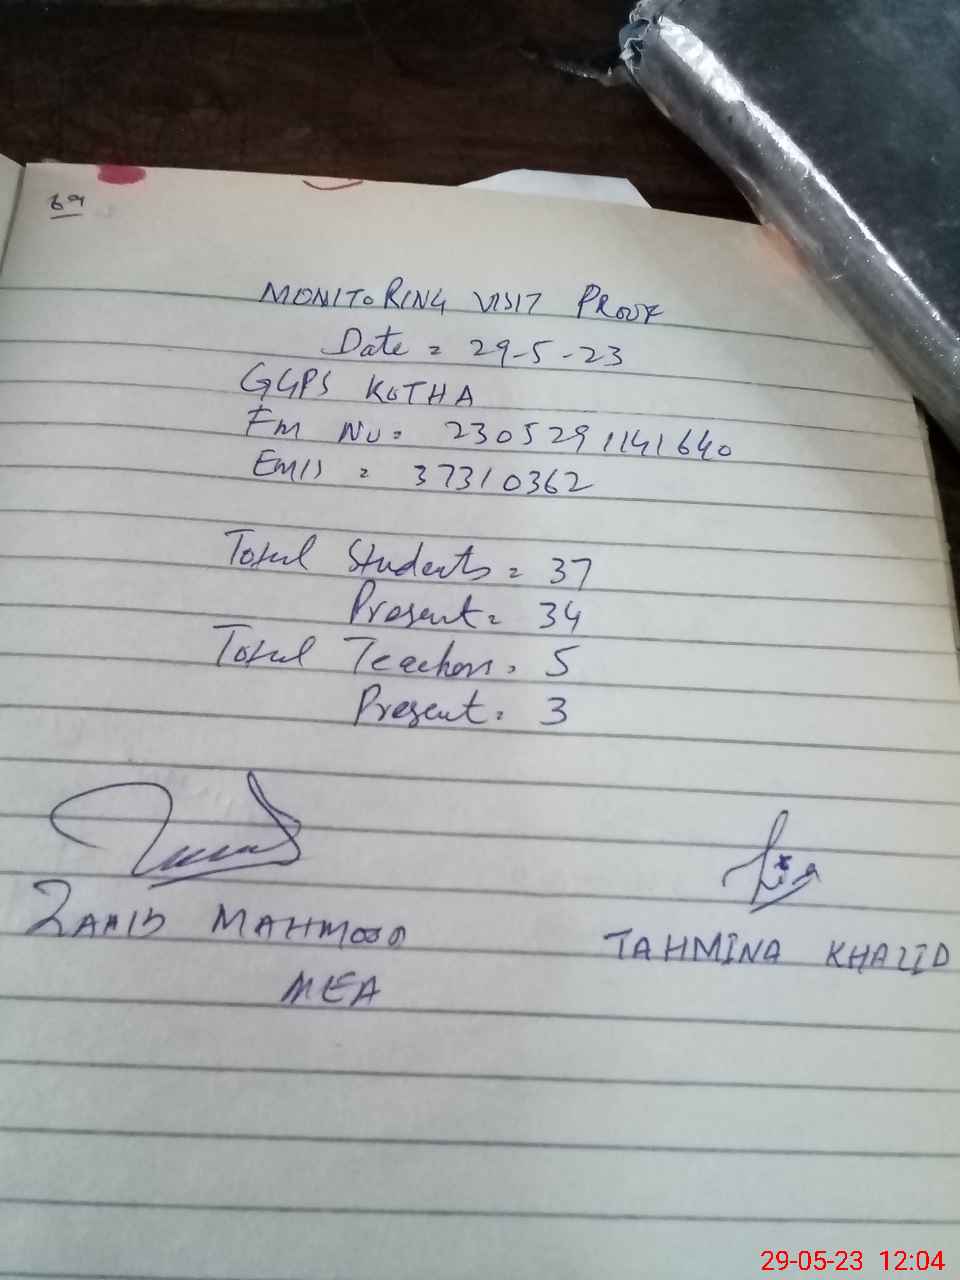 69
MONITORING VISIT PROOF
Date = 29-5-23
GGPS KOTHA
Fm No = 2305291141640
EMIS = 37310362
Total Students = 37
Present = 34
Total Teachers = 5
Present = 3
ZAHID MAHMOOD
TAHMINA KHALID
MEA
29-05-23 12:04